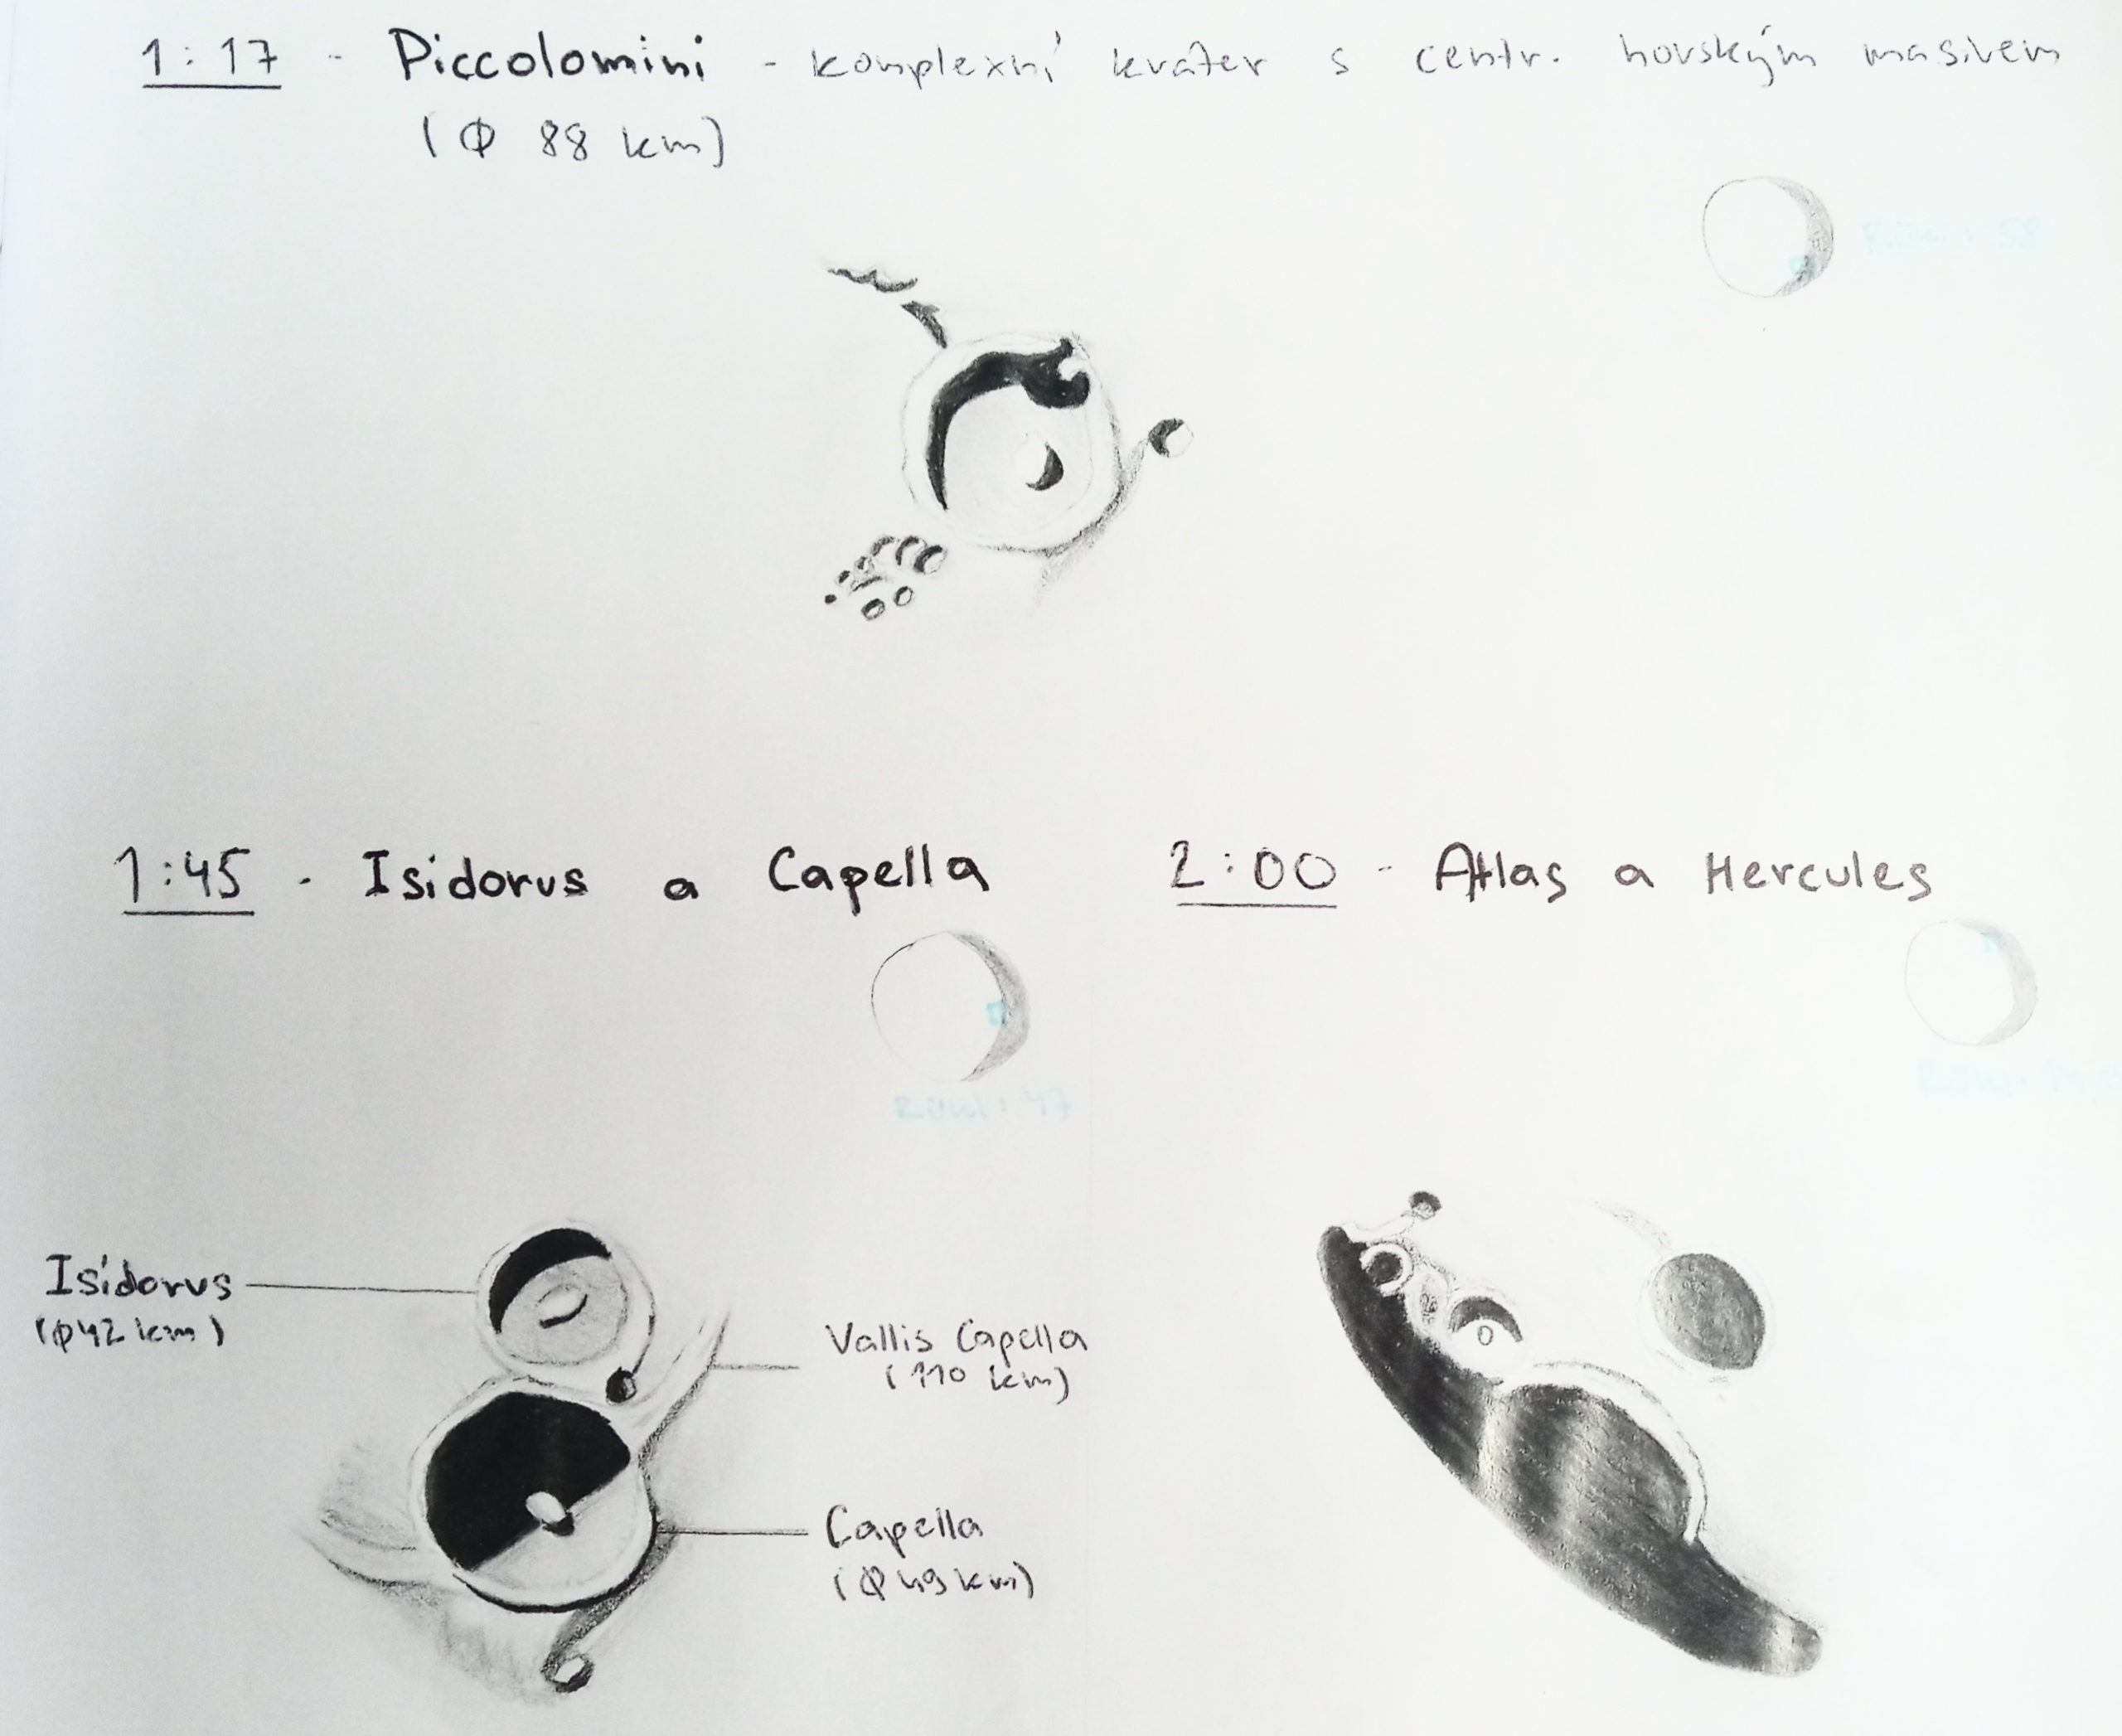 1:17 - Piccolomini - komplexní kráter s centr. horským masivem
(Φ 88 km)
1:45 - Isidorus a Capella
2:00 - Atlas a Hercules
Rükl: 47
Isidorus
(Φ 42 km)
Vallis Capella
(110 km)
Capella
(Φ 49 km)